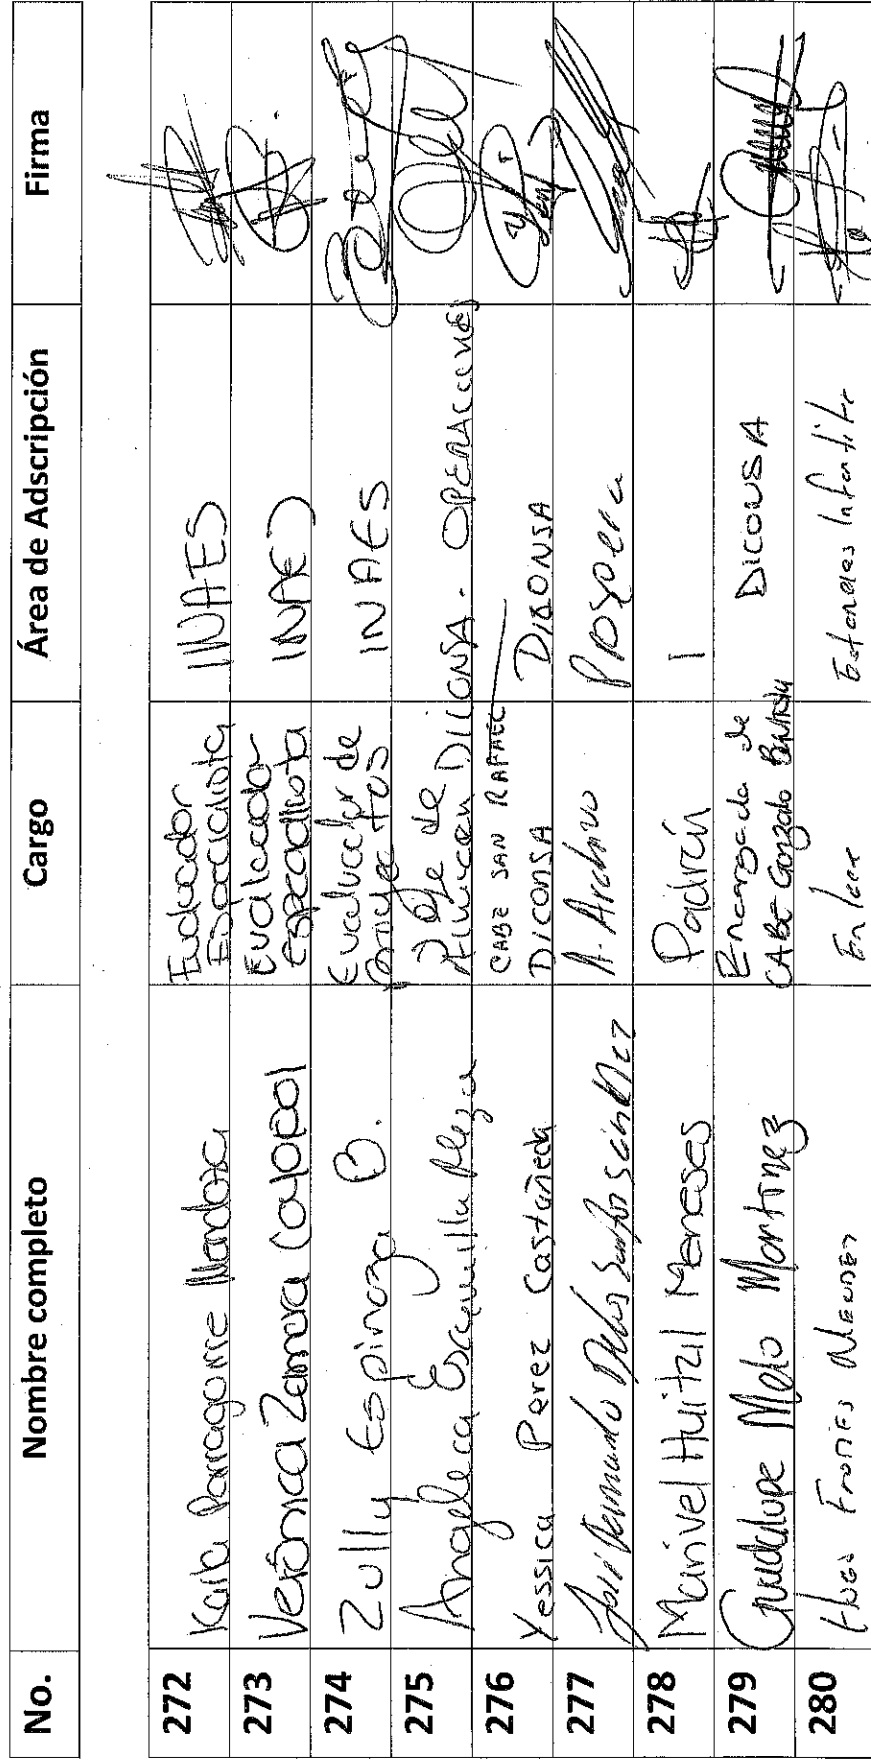 No. Nombre completo Cargo Área de Adscripción Firma
272 Karla Parraguirre Mendoza Evaluador Especialista INAES
273 Verónica Zamora Coyopol Evaluador especialista INAES
274 Zully Espinoza B. Evaluador de proyectos INAES
275 Angelica Escamilla Jefe de Almacen DICONSA. OPERACIONES
276 Yessica Perez Castañeda CABE SAN RAFAEL DICONSA DICONSA
277 José Armando De los Santos Sánchez A. Archivo Prospera
278 Marivel Huitzil Meneses Padrón
279 Guadalupe Melo Martinez Encargada de CABE Gonzalo Bautista DICONSA
280 Hugo Frontes Mendez Enlace Estancias Infantiles